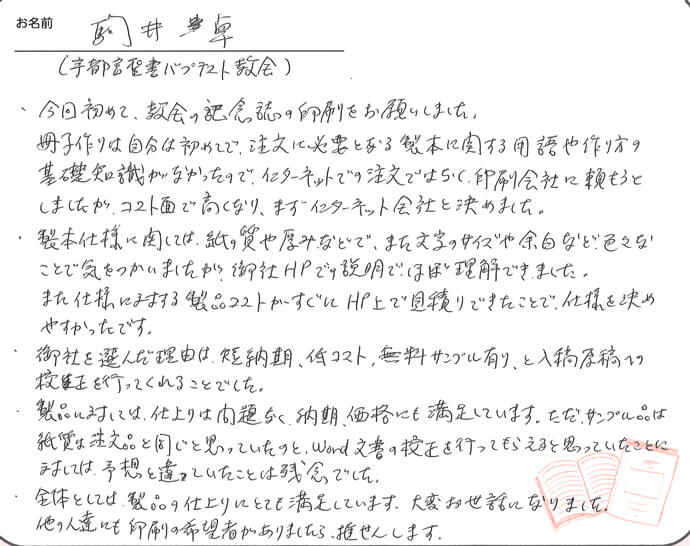 お名前 駒井 卓
(宇都宮聖書バプテスト教会)
・今回初めて、教会の記念誌の印刷をお願いしました。
冊子作りは自分は初めてで、注文に必要となる製本に関する用語や作り方の
基礎知識がなかったので、インターネットでの注文ではなく、印刷会社に頼もうと
しましたが、コスト面で高くなり、まずインターネット会社と決めました。
・製本仕様に関しては、紙の質や厚みなどで、また文字のサイズや余白など、色々な
ことで気をつかいましたが、御社HPでの説明で、ほぼ理解できました。
また仕様に対する製品コストがすぐにHP上で見積りできたことで、仕様を決め
やすかったです。
・御社を選んだ理由は、短納期、低コスト、無料サンプル有り、と入稿原稿への
校正を行ってくれることでした。
・製品に対しては、仕上りは問題なく、納期、価格にも満足しています。ただ、サンプル品は
紙質は注文品と同じと思っていたのと、Word文書の校正を行ってもらえると思っていたことに
対しては、予想と違っていたことは残念でした。
・全体としては、製品の仕上りにとても満足しています。大変お世話になりました。
他の人達にも印刷の希望者がありましたら、推せんします。